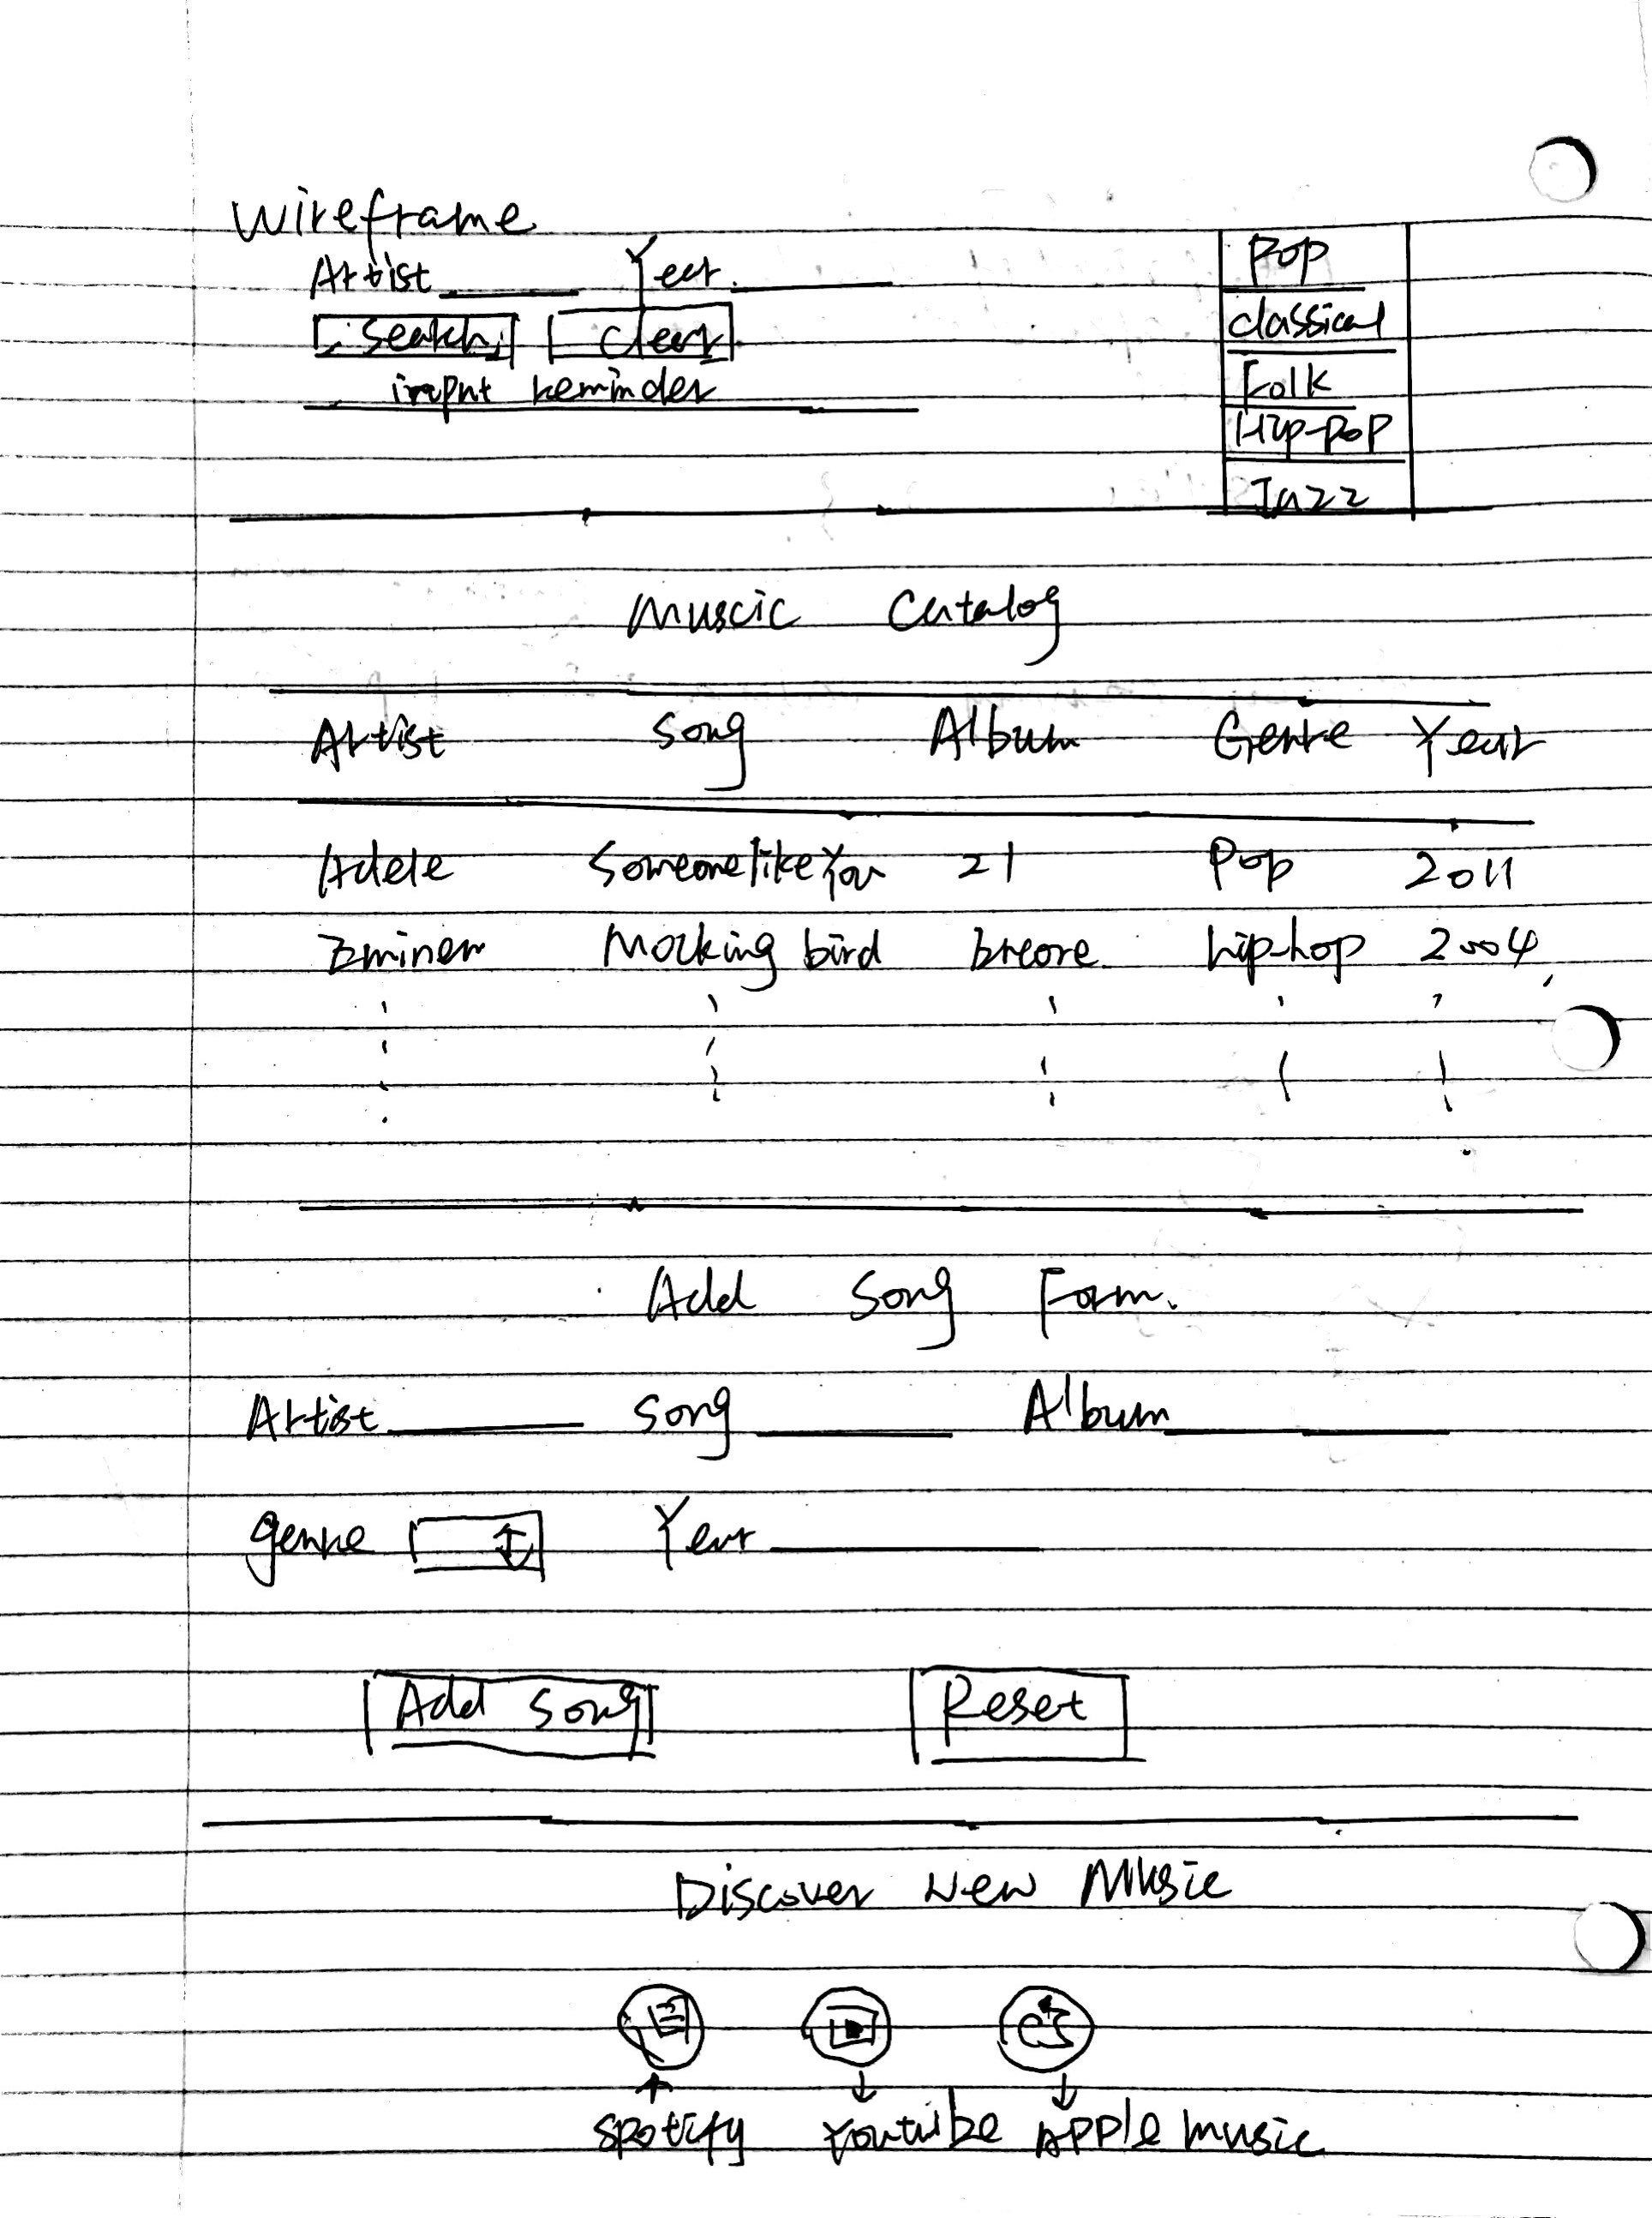 Wireframe
Artist Year
Search Clear
input reminder
Pop
classical
Folk
Hip-pop
Jazz
Muscic Catalog
Artist Song Album Genre Year
Adele Someone like You 21 Pop 2011
Eminem Mocking bird hip-hop 2004
Add Song Form.
Artist Song Album
genre Year
Add Song Reset
Discover New Music
Spotify Youtube Apple music